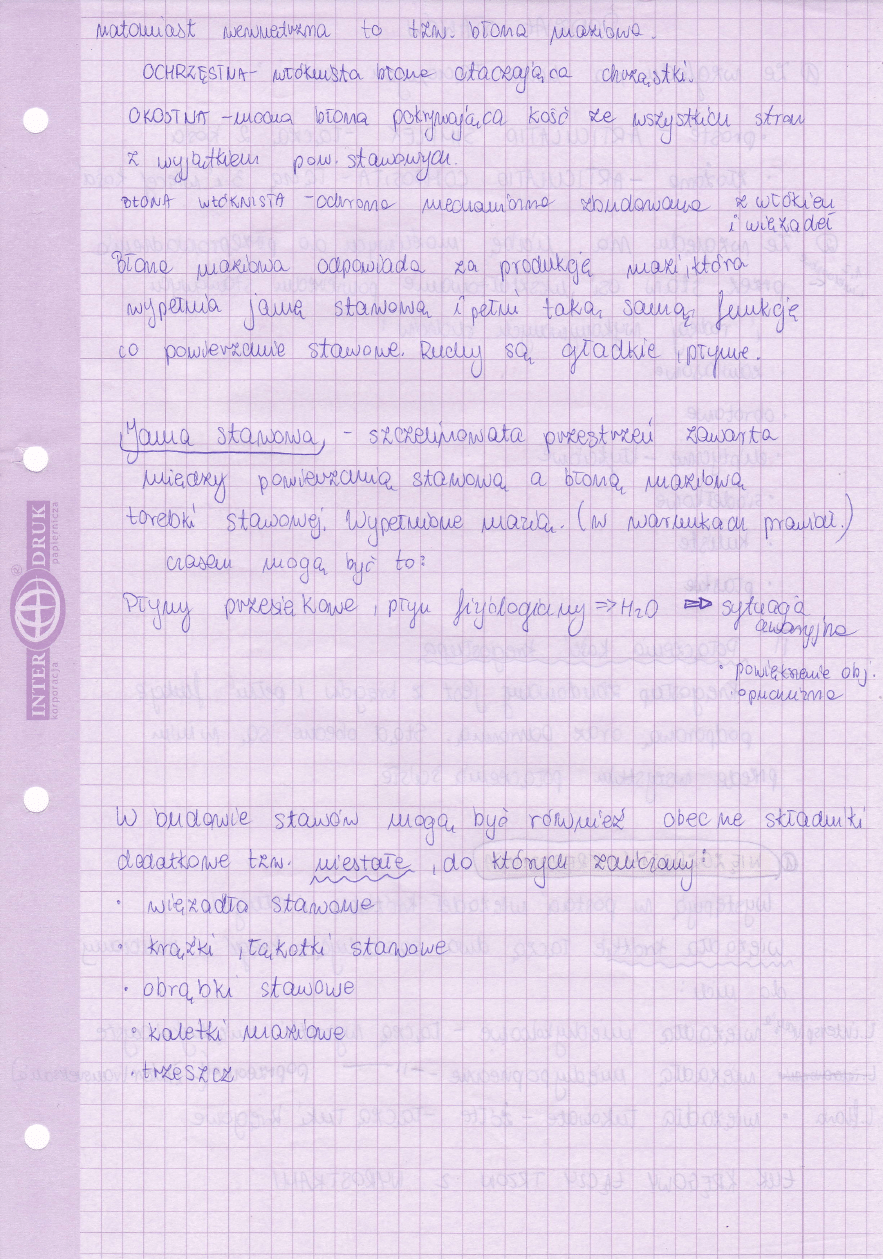 natomiast wewnętrzna to tzw. błona maziowa.
OCHRZĘSTNA - włóknista błona otaczająca chrząstki.
OKOSTNA - mocna błona pokrywająca kość ze wszystkich stron
z wyjątkiem pow. stawowych.
BŁONA WŁÓKNISTA - ochrona mechaniczna zbudowana z włókien
i więzadeł
Błona maziowa odpowiada za produkcję mazi, która
wypełnia jamę stawową i pełni taką samą funkcję
co powierzchnie stawowe. Ruchy są gładkie, płynne.
Jama stawowa, - szczelinowata przestrzeń zawarta
między powierzchnią stawową a błoną maziową
torebki stawowej. Wypełnione mazią. (w warunkach prawidł.)
czasem mogą być to:
Płyny przesiękowe, płyn fizjologiczny => H2O => sytuacja
awaryjna
• powiększenie obj.
• opuchlizna
W budowie stawów mogą być również obecne składniki
dodatkowe tzw. niestałe, do których zaliczamy:
• więzadła stawowe
• krążki, łąkotki stawowe
• obrąbki stawowe
• kaletki maziowe
• trzeszcz
INTER DRUK
korporacja papiernicza
®